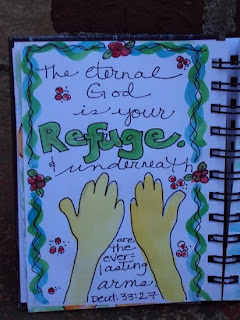 the eternal
God
is your
Refuge.
& underneath
are
the
ever-
lasting
arms.
Deut. 33:27